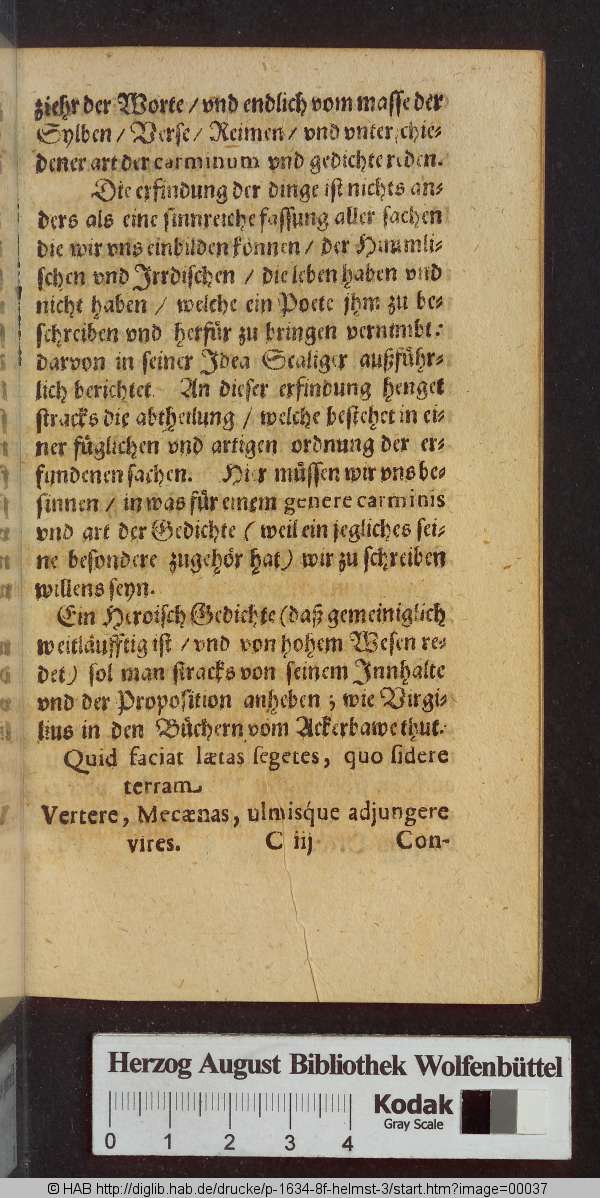 ziehr der Worte / vnd endlich vom masse der
Sylben / Verse / Reimen / vnd vnterschie-
dener art der carminum vnd gedichte reden.
Die erfindung der dinge ist nichts an-
ders als eine sinnreiche fassung aller sachen
die wir vns einbilden können / der Himmli-
schen vnd Jrrdischen / die leben haben vnd
nicht haben / welche ein Poete jhm zu be-
schreiben vnd herfür zu bringen vernimbt:
darvon in seiner Idea Scaliger außführ-
lich berichtet. An dieser erfindung henget
stracks die abtheilung / welche bestehet in ei-
ner füglichen vnd artigen ordnung der er-
fundenen sachen. Hier müssen wir vns be-
sinnen / in was für einem genere carminis
vnd art der Gedichte (weil ein jegliches sei-
ne besondere zugehör hat) wir zu schreiben
willens seyn.
Ein Heroisch Gedichte (daß gemeiniglich
weitläufftig ist / vnd von hohem Wesen re-
det) sol man stracks von seinem Innhalte
vnd der Proposition anheben; wie Virgi-
lius in den Büchern vom Ackerbawe thut.
Quid faciat lætas segetes, quo sidere
terram
Vertere, Mecænas, ulmisq́ue adjungere
vires. C iij Con-
Herzog August Bibliothek Wolfenbüttel
Kodak
Gray Scale
0 1 2 3 4
© HAB http://diglib.hab.de/drucke/p-1634-8f-helmst-3/start.htm?image=00037